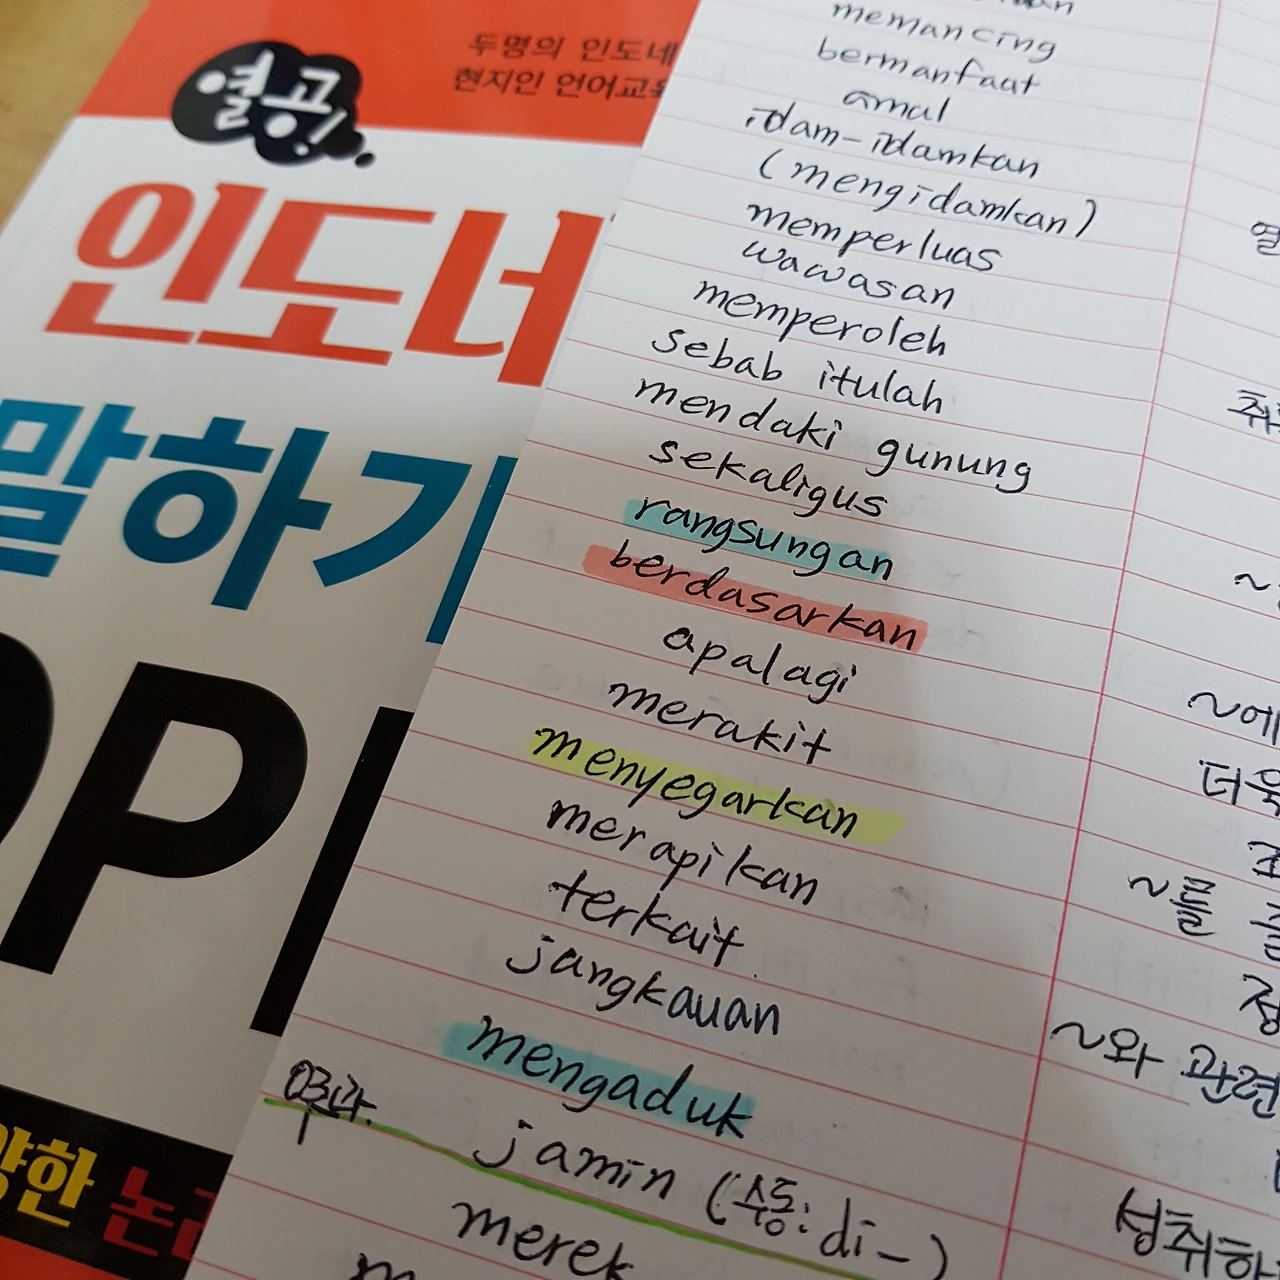 두명의 인도네
현지인 언어교육
열공!
인도네
말하기
OPI
양한 논리
memancing
bermanfaat
amal
idam-idamkan
(mengidamkan)
memperluas
wawasan
memperoleh
sebab itulah
mendaki gunung
sekaligus
rangsungan
berdasarkan
apalagi
merakit
~에
menyegarkan
더욱
merapikan
terkait
~를
jangkauan
mengaduk
~와 관련
jamin (수동: di-)
merek
성취하